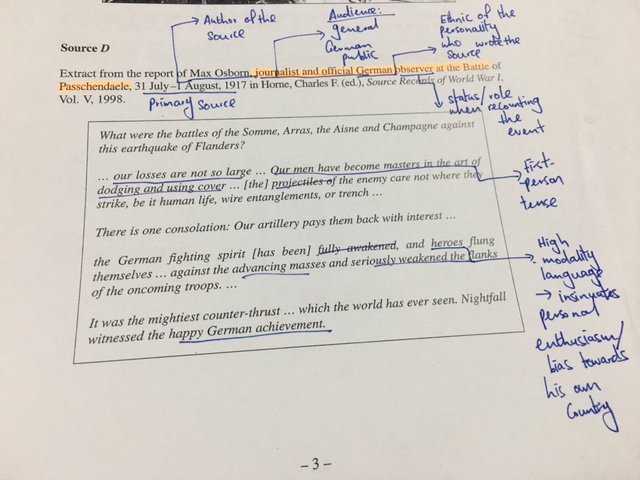 Author of the
Source
Audience:
general
German
public
Ethnic of the
personality
who wrote the
source
Source D
Extract from the report of Max Osborn, journalist and official German observer at the Battle of
Passchendaele, 31 July–1 August, 1917 in Horne, Charles F. (ed.), Source Records of World War I,
Vol. V, 1998.
Primary Source
status/role
when recounting
the
event
What were the battles of the Somme, Arras, the Aisne and Champagne against
this earthquake of Flanders?
... our losses are not so large ... Our men have become masters in the art of
dodging and using cover ... [the] projectiles of the enemy care not where they
strike, be it human life, wire entanglements, or trench ...
There is one consolation: Our artillery pays them back with interest ...
the German fighting spirit [has been] fully awakened, and heroes flung
themselves ... against the advancing masses and seriously weakened the flanks
of the oncoming troops. ...
It was the mightiest counter-thrust ... which the world has ever seen. Nightfall
witnessed the happy German achievement.
First-
person
tense
High
modality
language
→ insinuates
personal
enthusiasm/
bias towards
his own
Country
– 3 –